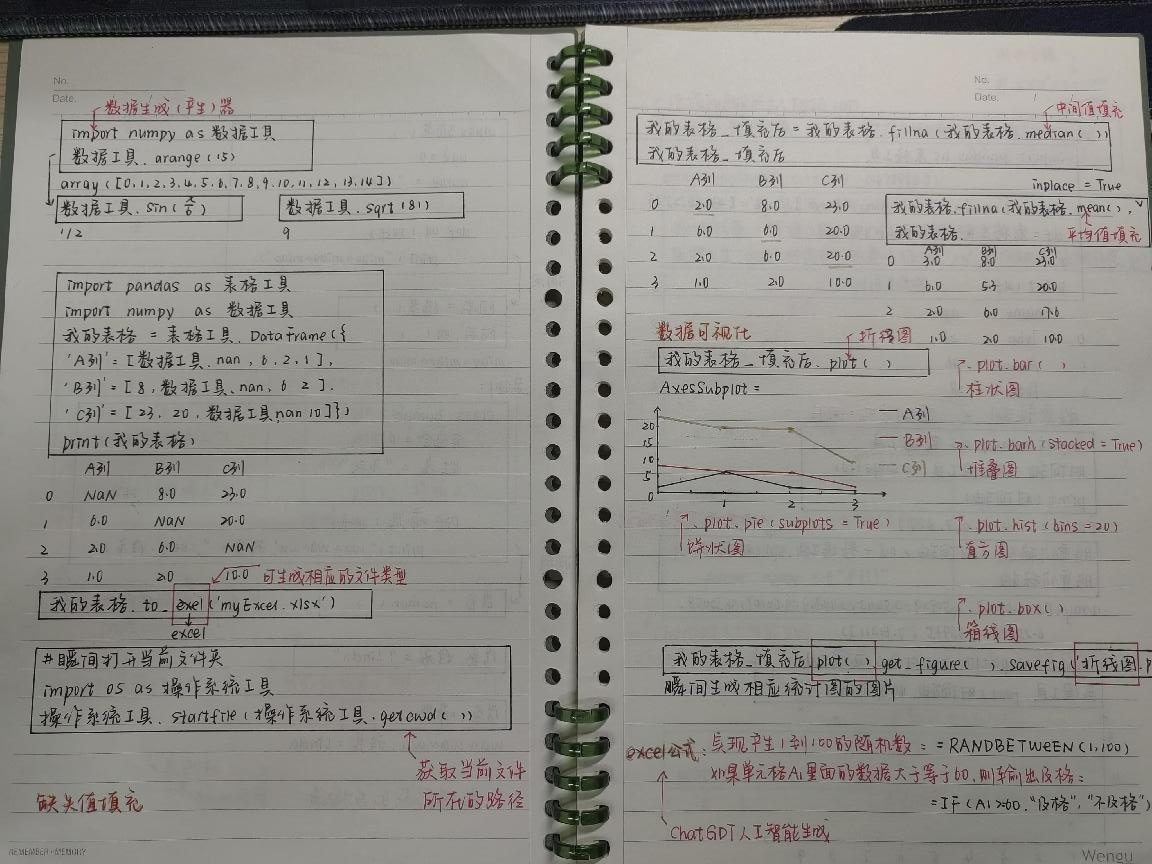 No.
Date.
数据生成(产生)器
import numpy as 数据工具
数据工具.arange(15)
array([0,1,2,3,4,5,6,7,8,9,10,11,12,13,14])
数据工具.sin( )
数据工具.sqrt(81)
1/2
9
import pandas as 表格工具
import numpy as 数据工具
我的表格 = 表格工具.DataFrame({
'A列'=[数据工具.nan,6,2,1],
'B列'=[8,数据工具.nan,6 2].
'C列'=[23, 20, 数据工具.nan 10]})
print(我的表格)
A列 B列 C列
0 NaN 8.0 23.0
1 6.0 NaN 20.0
2 2.0 6.0 NaN
3 1.0 2.0 10.0
可生成相应的文件类型
我的表格.to_exel('myExcel.xlsx')
excel
#瞬间打开当前文件夹
import os as 操作系统工具
操作系统工具.startfile(操作系统工具.getcwd())
获取当前文件
所在的路径
缺失值填充
REMEMBER·MEMORY
No.
Date.
中间值填充
我的表格_填充后=我的表格.fillna(我的表格.median())
我的表格_填充后
A列 B列 C列
0 2.0 8.0 23.0
1 6.0 6.0 20.0
2 2.0 6.0 20.0
3 1.0 2.0 10.0
inplace = True
我的表格.fillna(我的表格.mean(),
我的表格.
平均值填充
A列 B列 C列
0 3.0 8.0 23.0
1 6.0 5.3 20.0
2 2.0 6.0 17.6
1.0 2.0 10.0
数据可视化
折线图
我的表格_填充后.plot( )
AxesSubplot=
.plot.bar( )
柱状图
20
15
10
5
0
1 2 3
A列
B列
C列
.plot.barh(stacked=True)
堆叠图
.plot.pie(subplots=True)
饼状图
.plot.hist(bins=20)
直方图
.plot.box()
箱线图
我的表格_填充后.plot( ).get_figure( ).savefig('折线图.p
瞬间生成相应统计图的图片
excel公式:实现产生1到100的随机数:=RANDBETWEEN(1,100)
如果单元格A1里面的数据大于等于60,则输出及格:
=IF(A1>=60,"及格","不及格")
ChatGDT人工智能生成
Wengu